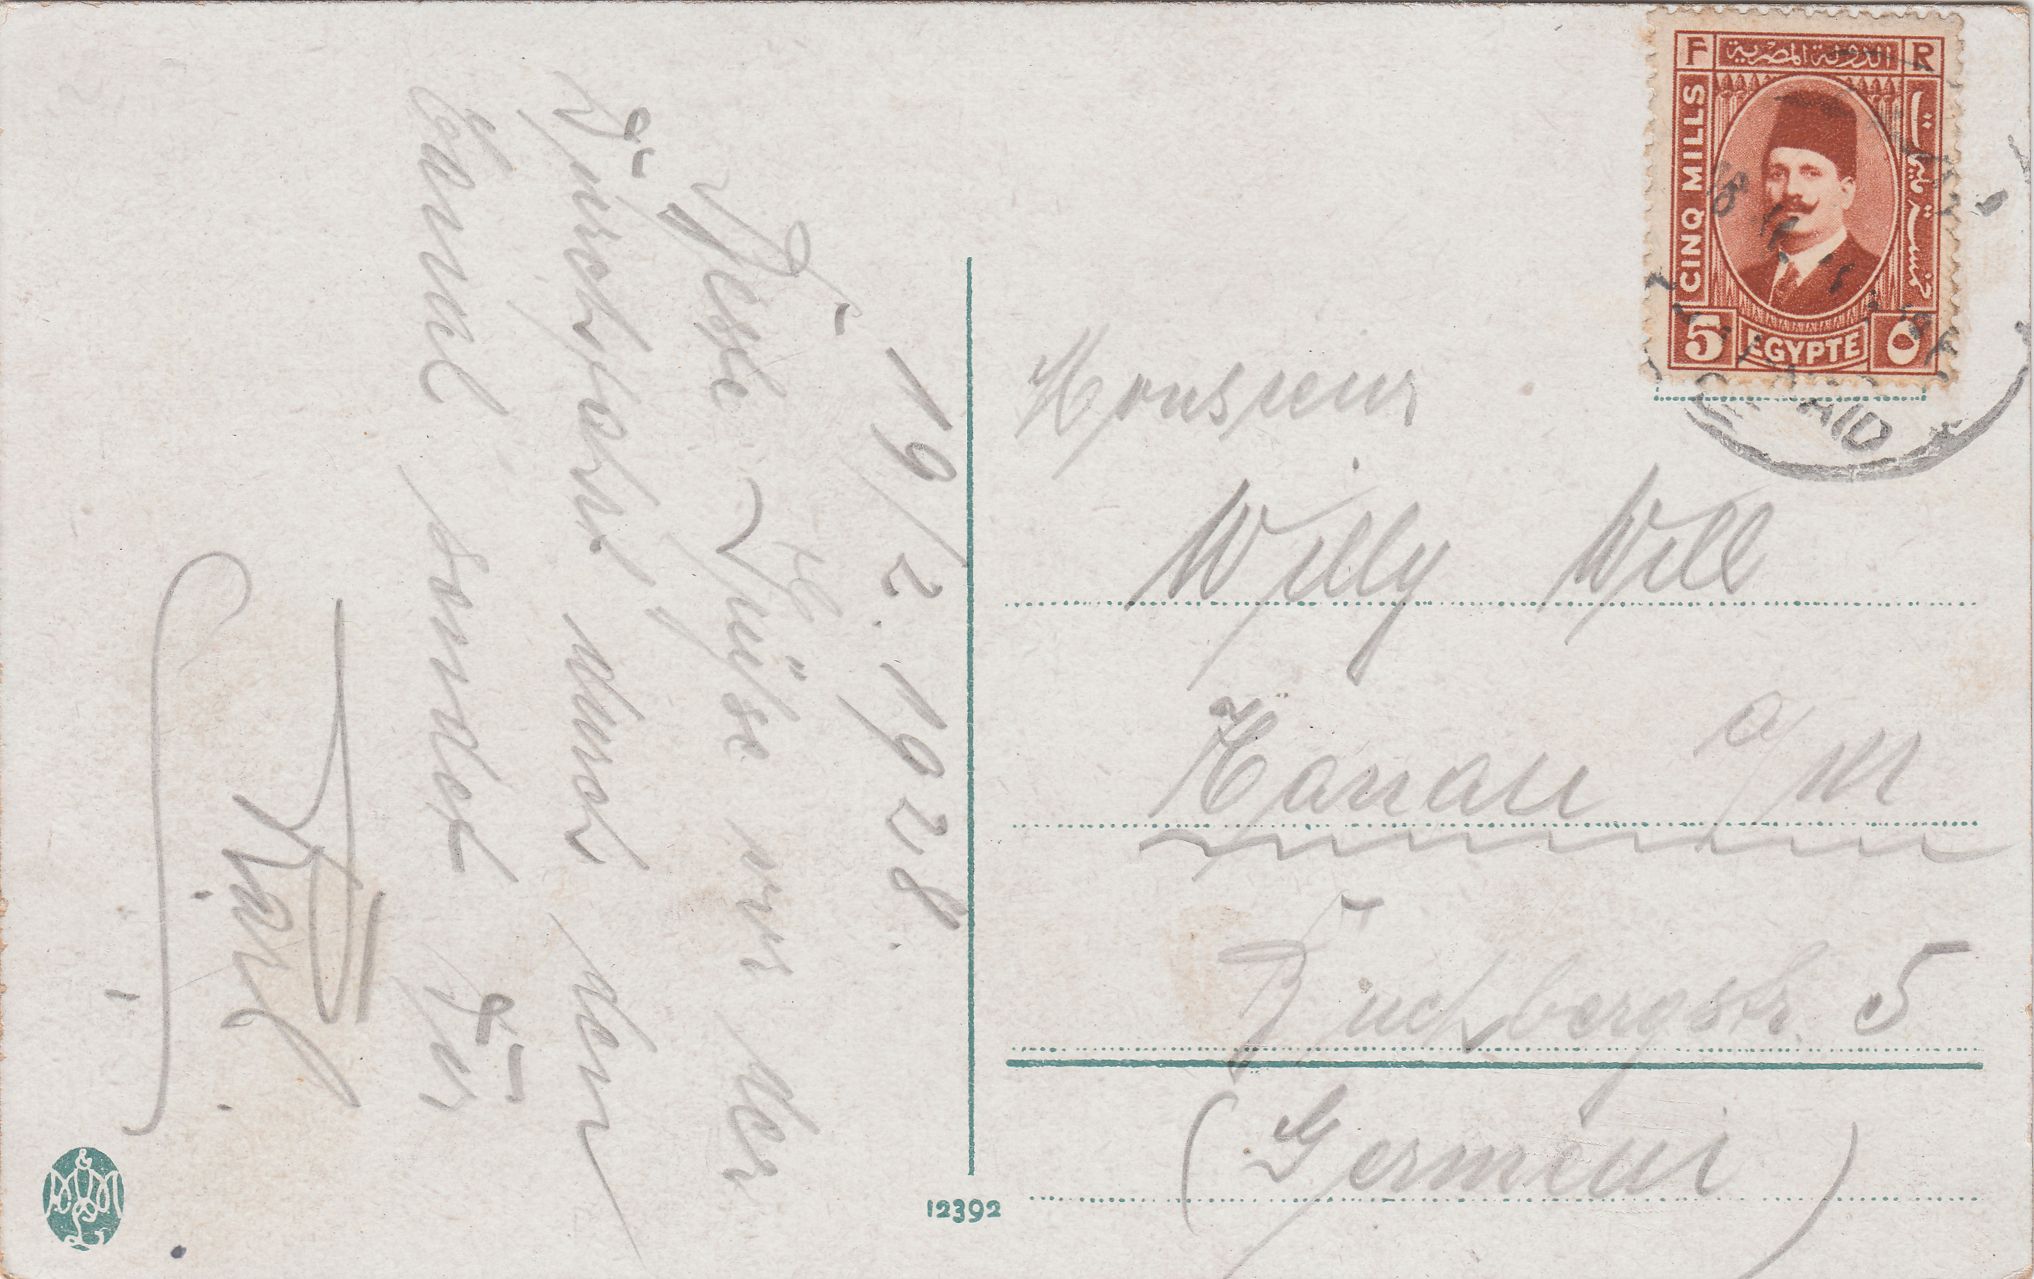 F الدولة المصرية R
CINQ MILLS
خمسة مليمات
5 EGYPTE ٥
SAID
19/2.1928.
Grüße vor der
Durchfahrt durch den
Canal sendet Dir
Karl
Monsieur
Willy Will
Hanau a/M
5
(Germeni)
12392